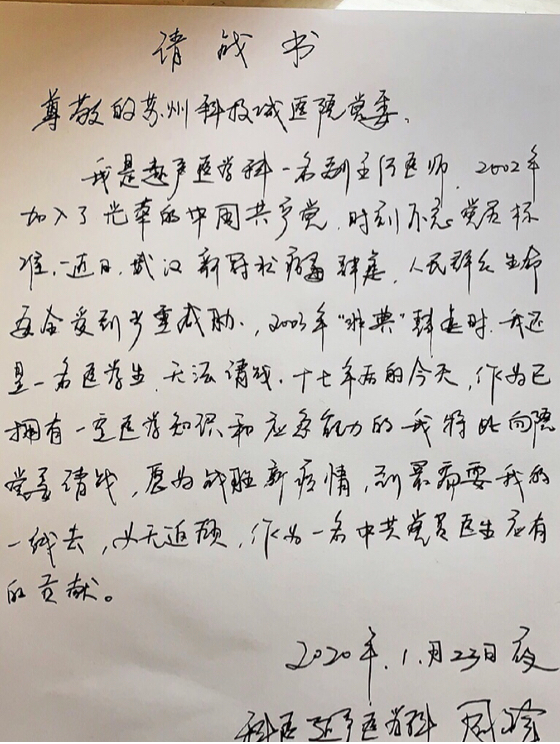 请战书
尊敬的苏州科技城医院党委,
我是超声医学科一名副主任医师. 2002年
加入了光荣的中国共产党, 时刻不忘党员标
准, 近日, 武汉新冠状病毒肆虐, 人民群众生命
安全受到严重威胁., 2003年“非典”肆虐时, 我还
是一名医学生, 无法请战. 十七年后的今天, 作为已
拥有一定医学知识和应急能力的我特此向院
党委请战, 愿为战胜新疫情, 到最需要我的
一线去, 义无返顾, 作为一名中共党员医生应有
的贡献。
2020年.1.月23日夜
科医超声医学科 周